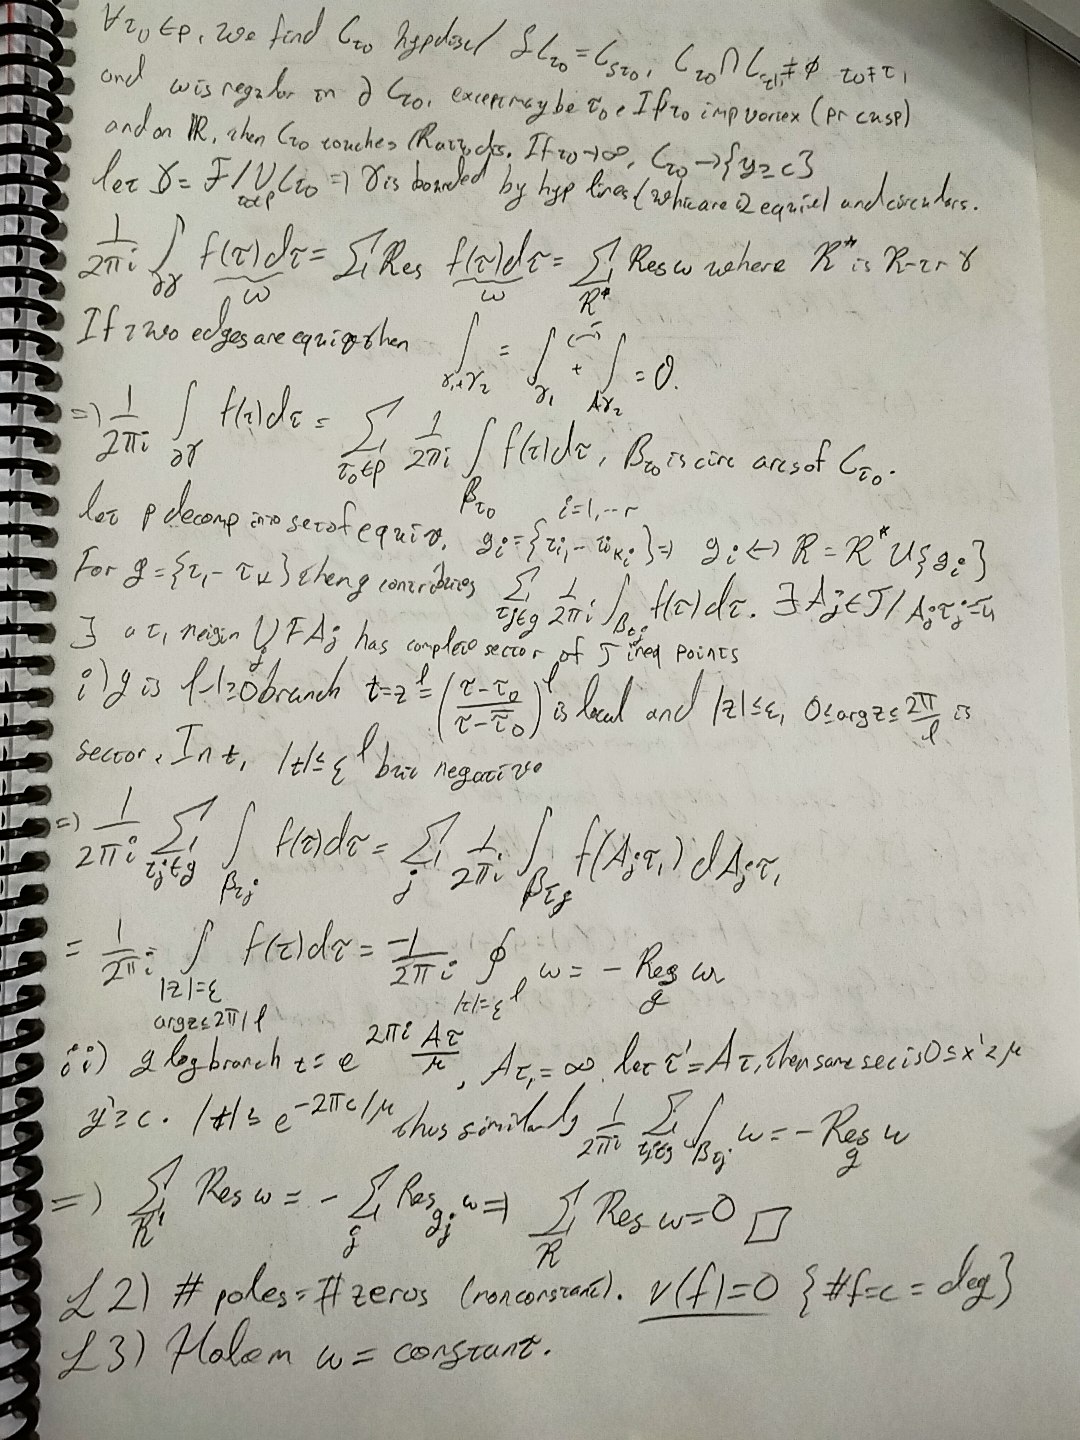 ∀τ₀∈p, we find C_τ₀ hypdisel S C_τ₀ = C_Sτ₀, C_τ₀ ∩ C_τ₁ ≠ ϕ τ₀≠τ₁
and w is regular in ∂ C_τ₀, except maybe τ₀. If τ₀ imp vortex (pr cusp)
and on ℝ, then C_τ₀ touches ℝ at τ₀. If τ₀→∞, C_τ₀ → {y≥c}
let γ = F/⋃_{τ₀∈p} C_τ₀ ⇒ γ is bounded by hyp lines (which are 2 equiv) and circulars.
1/2πi ∫_∂γ f(τ)dτ = Σ Res f(τ)dτ = Σ_{R*} Res ω where R* is R in γ
If two edges are equiv then ∫_{γ₁+γ₂} = ∫_γ₁ + ∫_{Aγ₂} = 0.
⇒ 1/2πi ∫_∂γ f(τ)dτ = Σ_{τ₀∈p} 1/2πi ∫_β_τ₀ f(τ)dτ, β_τ₀ is circ arcs of C_τ₀.
let p decomp into set of equiv. g_i = {τ_i₁ - τ_ik_i} i=1,--r ⇒ g_i ↔ R = R* ∪ {g_i}
For g = {τ₁ - τ_k} then g contributes Σ_{τj∈g} 1/2πi ∫_β_τj f(τ)dτ. ∃ A_j ∈ J / A_jτ_j = τ₁
∃ a τ₁ neigh ⋃_j F A_j has complete sector of J ineq points
i) g is l-1≥0 branch t = z^l = ((τ-τ₀)/(τ-τ̄₀))^l is local and |z|≤ε, 0≤arg z≤2π/l is
sector. In t, |t|≤ε^l but negative
⇒ 1/2πi Σ_{τj∈g} ∫_β_τj f(τ)dτ = Σ_j 1/2πi ∫_β_τj f(A_jτ₁) dA_jτ₁
= 1/2πi ∫_{|z|=ε, arg z≤2π/l} f(τ)dτ = -1/2πi ∮_{|t|=ε^l} ω = - Res_g ω
ii) g log branch t = e^{2πi Aτ/μ}, Aτ₁=∞. let τ' = Aτ, then same sec is 0≤x'<μ
y'≥c. |t|≤e^{-2πc/μ} thus similarly 1/2πi Σ_{τj∈g} ∫_β_τj ω = - Res_g ω
⇒ Σ_{R'} Res ω = - Σ_j Res_{g_j} ω ⇒ Σ_R Res ω = 0 □
L2) # poles = # zeros (nonconstant). v(f)=0 {#f=c = deg}
L3) Holom ω = constant.